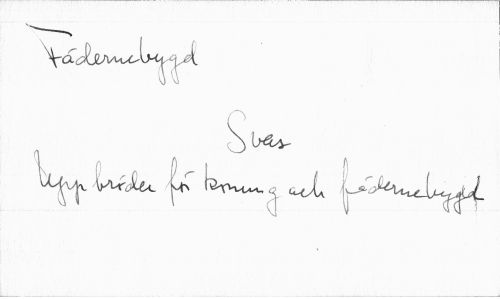 Fädernebygd
Svers
Upp bröder för konung och fädernebygd